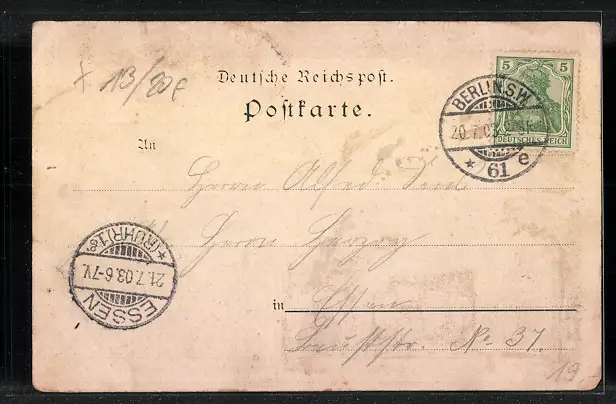 + 13/80€
Deutsche Reichspost.
Postkarte.
5 5
DEUTSCHES REICH
BERLIN S.W.
20.7.03
* 61 e
An
Herrn Alfred
Herrn Herzog
ESSEN
21.7.03.6-7V.
*(RUHR)1*
in Essen
No 37.
19